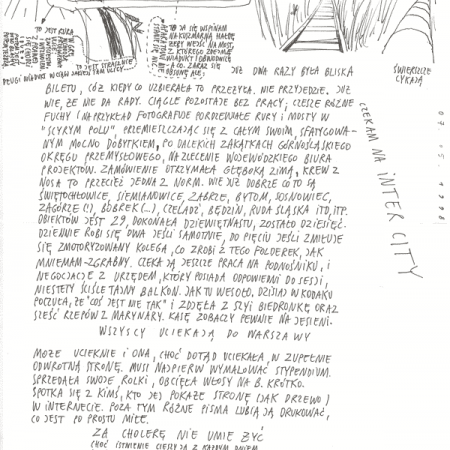 TO JA SIĘ WSPINAM
NA KOSZMARNĄ HAŁDĘ,
ŻEBY WEJŚĆ NA MOST,
Z KTÓREGO ZDEJMĘ
WIADUKT I OBWODNICĘ
A CO. ZARAZ SIĘ
OBSUNĘ ALE:
TO JEST RURA
TO JEST STRASZNIE
DŁUGI WIADUKT W CIĄGU
JUŻ DWA RAZY BYŁA BLISKA
ŚWIERSZCZE
CYKAJĄ
BILETU, CÓŻ KIEDY CO UZBIERAŁA TO PRZEŻYŁA. NIE PRZYJEDZIE. JUŻ
WIE, ŻE NIE DA RADY. CIĄGLE POZOSTAJE BEZ PRACY; CZESZE RÓŻNE
FUCHY (NA PRZYKŁAD FOTOGRAFUJE PORDZEWIAŁE RURY I MOSTY W
"SZCZYRYM POLU", PRZEMIESZCZAJĄC SIĘ Z CAŁYM SWOIM, SFATYGOWA-
NYM MOCNO DOBYTKIEM, PO DALEKICH ZAKĄTKACH GÓRNOŚLĄSKIEGO
OKRĘGU PRZEMYSŁOWEGO, NA ZLECENIE WOJEWÓDZKIEGO BIURA
PROJEKTÓW. ZAMÓWIENIE OTRZYMAŁA GŁĘBOKĄ ZIMĄ, KREW Z
NOSA TO PRZECIEŻ JEDNA Z NORM. WIE JUŻ DOBRZE CO TO SĄ
ŚWIĘTOCHŁOWICE, SIEMIANOWICE, ZABRZE, BYTOM, SOSNOWIEC,
ZAGÓRZE (!), BOBREK (...), CZELADŹ, BĘDZIN, RUDA ŚLĄSKA ITD, ITP.
OBIEKTÓW JEST 29, DOKONAŁA DZIEWIĘTNASTU, ZOSTAŁO DZIESIĘĆ.
DZIENNIE ROBI SIĘ DWA JEŚLI SAMOTNIE, DO PIĘCIU JEŚLI ZMIŁUJE
SIĘ ZMOTORYZOWANY KOLEGA, CO ZROBI Z TEGO FOLDEREK, JAK
MNIEMAM-ZGRABNY. CZEKA JĄ JESZCZE PRACA NA PODNOŚNIKU, I
NEGOCJACJE Z URZĘDEM, KTÓRY POSIADA ODPOWIEDNI DO SESJI,
NIESTETY ŚCIŚLE TAJNY BALKON. JAK TU WESOŁO, DZISIAJ W KODAKU
POCZUŁA, ŻE "COŚ JEST NIE TAK" I ZDJĘŁA Z SZYI BIEDRONKĘ ORAZ
SZEŚĆ RZEPÓW Z MARYNARY. KASĘ ZOBACZY PEWNIE NA JESIENI.
WSZYSCY UCIEKAJĄ DO WARSZAWY
MOŻE UCIEKNIE I ONA, CHOĆ DOTĄD UCIEKAŁA, W ZUPEŁNIE
ODWROTNĄ STRONĘ. MUSI NAJPIERW WYMALOWAĆ STYPENDIUM.
SPRZEDAŁA SWOJE ROLKI, OBCIĘŁA WŁOSY NA B. KRÓTKO.
SPOTKA SIĘ Z KIMŚ, KTO JEJ POKAŻE STRONĘ (JAK DRZEWO)
W INTERNECIE. POZA TYM RÓŻNE PISMA LUBIĄ JĄ DRUKOWAĆ,
CO JEST PO PROSTU MIŁE.
ZA CHOLERĘ NIE UMIE ŻYĆ
CHOĆ ISTNIENIE CIESZY JĄ Z KAŻDYM DNIEM
CZEKAM NA INTER CITY